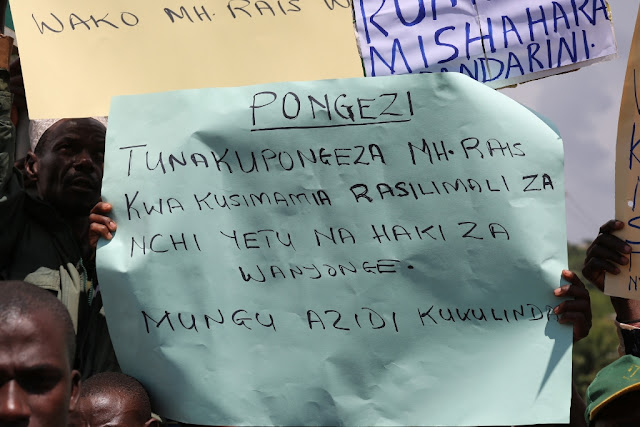 WAKO MH. RAIS W
MISHAHARA
PONGEZI
TUNAKUPONGEZA MH. RAIS
KWA KUSIMAMIA RASILIMALI ZA
NCHI YETU NA HAKI ZA
WANYONGE.
MUNGU AZIDI KUKULINDA